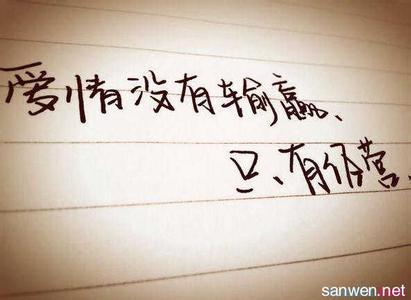 爱情没有输赢、
只有经营.
sanwen.net